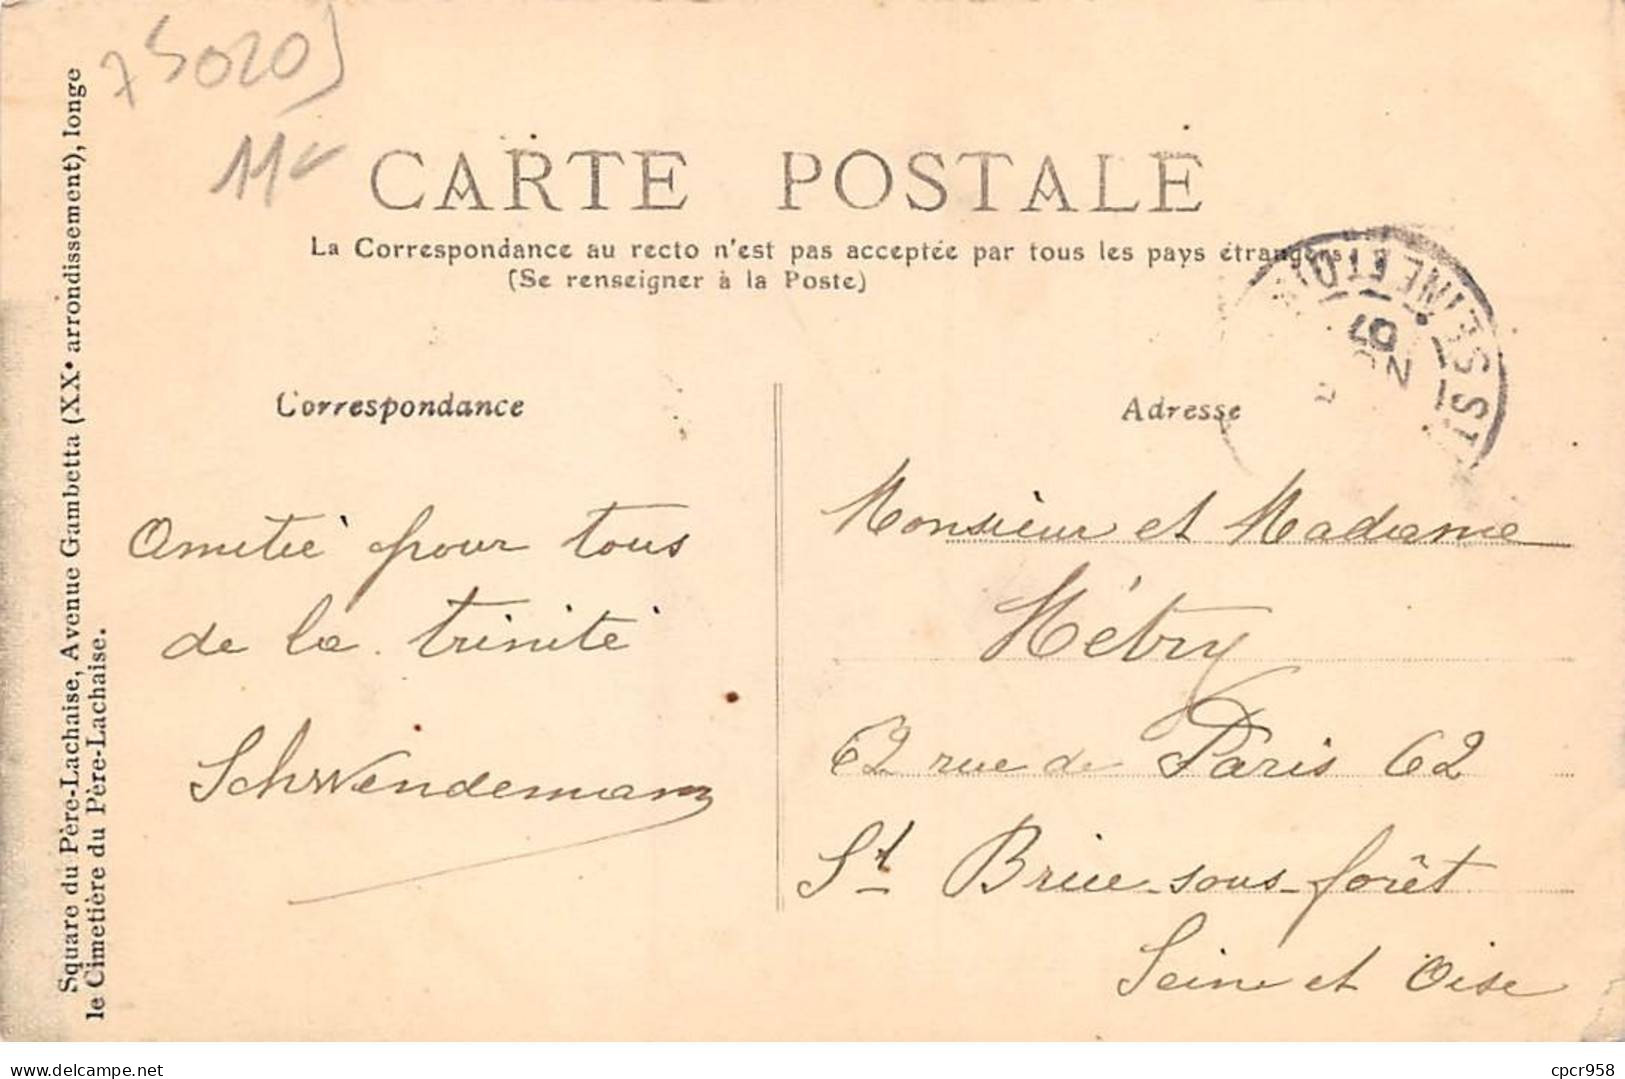 75020
11€
CARTE POSTALE
La Correspondance au recto n'est pas acceptée par tous les pays étrangers
(Se renseigner à la Poste)
Square du Père-Lachaise, Avenue Gambetta (XXe arrondissement), longe
le Cimetière du Père-Lachaise.
SEINE ET OI
07
Correspondance
Amitié pour tous
de la trinité
Schwendemann
Adresse
Monsieur et Madame
Métry
62 rue de Paris 62
St Brice-sous-forêt
Seine et Oise
www.delcampe.net
cpcr958